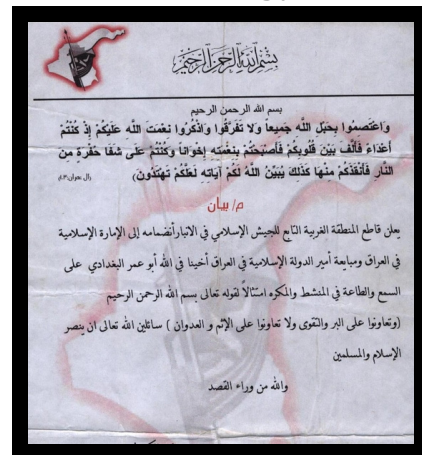 بسم الله الرحمن الرحيم
بسم الله الرحمن الرحيم
وَاعْتَصِمُوا بِحَبْلِ اللَّهِ جَمِيعاً وَلا تَفَرَّقُوا وَاذْكُرُوا نِعْمَتَ اللَّهِ عَلَيْكُمْ إِذْ كُنْتُمْ
أَعْدَاءً فَأَلَّفَ بَيْنَ قُلُوبِكُمْ فَأَصْبَحْتُمْ بِنِعْمَتِهِ إِخْوَاناً وَكُنْتُمْ عَلَى شَفَا حُفْرَةٍ مِنَ
النَّارِ فَأَنْقَذَكُمْ مِنْهَا كَذَلِكَ يُبَيِّنُ اللَّهُ لَكُمْ آيَاتِهِ لَعَلَّكُمْ تَهْتَدُونَ) (آل عمران:
م/ بيان
يعلن قاطع المنطقة الغربية التابع للجيش الإسلامي في الانبار أنضمامه إلى الإمارة الإسلامية
في العراق ومبايعة أمير الدولة الإسلامية في العراق أخينا في الله أبو عمر البغدادي على
السمع والطاعة في المنشط والمكره امتثالاً لقوله تعالى بسم الله الرحمن الرحيم
(وتعاونوا على البر والتقوى ولا تعاونوا على الإثم و العدوان ) سائلين الله تعالى ان ينصر
الإسلام والمسلمين
والله من وراء القصد